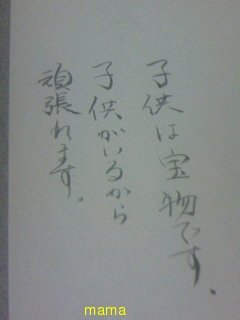 子供は宝物です。
子供がいるから
頑張れます。
mama